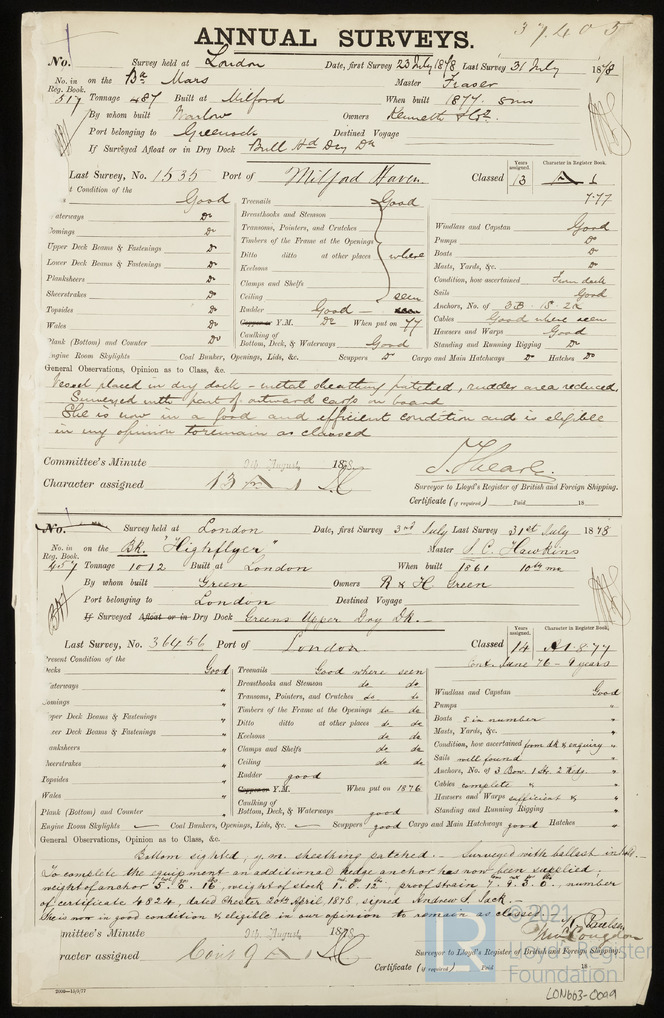 37405
ANNUAL SURVEYS.
No. Survey held at London Date, first Survey 23 July 1878 Last Survey 31 July 1878
No. in on the Bq Mars Master Fraser
Reg. Book.
517 Tonnage 487 Built at Milford When built 1877.
By whom built Warlow Owners Kenneth & Co.
Port belonging to Greenock Destined Voyage
If Surveyed Afloat or in Dry Dock Bull Hd Dry Dk
Last Survey, No. 1535 Port of Milford Haven Classed
Years assigned. 13
Character in Register Book. A 1
7.77
t Condition of the Good
aterways Do
omings Do
Upper Deck Beams & Fastenings Do
Lower Deck Beams & Fastenings Do
Planksheers Do
Sheerstrakes Do
Topsides Do
Wales Do
Plank (Bottom) and Counter Do
Treenails Good
Breasthooks and Stemson
Transoms, Pointers, and Crutches
Timbers of the Frame at the Openings
Ditto ditto at other places where
Keelsons
Clamps and Shelfs
Ceiling seen
Rudder Good
Copper or Y.M. Do When put on 77
Caulking of
Bottom, Deck, & Waterways Good
Windlass and Capstan Good
Pumps Do
Boats Do
Masts, Yards, &c. Do
Condition, how ascertained From deck
Sails Good
Anchors, No. of 3B 1S 2K
Cables Good where seen
Hawsers and Warps Good
Standing and Running Rigging Do
ngine Room Skylights Coal Bunker, Openings, Lids, &c. Scuppers Do Cargo and Main Hatchways Do Hatches Do
General Observations, Opinion as to Class, &c.
Vessel placed in dry dock - metal sheathing patched, rudder area reduced,
Surveyed with part of outward cargo on board
She is now in a good and efficient condition and is eligible
in my opinion to remain as classed
Committee's Minute 9th August 1878
Character assigned 13 A 1
Surveyor to Lloyd's Register of British and Foreign Shipping.
Certificate (if required) Paid 18
No. Survey held at London Date, first Survey 3rd July Last Survey 31st July 1878
No. in on the Bk. "Highflyer" Master S. C. Hawkins
Reg. Book.
457 Tonnage 1012 Built at London When built 1861 10th mo
By whom built Green Owners R & H Green
Port belonging to London Destined Voyage
If Surveyed Afloat or in Dry Dock Greens Upper Dry Dk.
Last Survey, No. 36456 Port of London Classed
Years assigned. 14
Character in Register Book. A 1 - 8.77
Cont. June 76 - 9 years
resent Condition of the
ecks Good
aterways "
omings "
pper Deck Beams & Fastenings "
wer Deck Beams & Fastenings "
anksheers "
heerstrakes "
Topsides "
Wales "
Plank (Bottom) and Counter "
Treenails Good where seen
Breasthooks and Stemson do do
Transoms, Pointers, and Crutches do do
Timbers of the Frame at the Openings do do
Ditto ditto at other places do do
Keelsons do do
Clamps and Shelfs do do
Ceiling do do
Rudder good
Copper or Y.M. When put on 1876
Caulking of
Bottom, Deck, & Waterways good
Windlass and Capstan Good
Pumps "
Boats 5 in number "
Masts, Yards, &c. "
Condition, how ascertained from dk & enquiry "
Sails well found "
Anchors, No. of 3 Bow. 1 Str. 2 Kdg. "
Cables complete & "
Hawsers and Warps sufficient & "
Standing and Running Rigging "
Engine Room Skylights Coal Bunkers, Openings, Lids, &c. Scuppers good Cargo and Main Hatchways good Hatches "
General Observations, Opinion as to Class, &c.
Bottom sighted, y.m. sheathing patched. - Surveyed with ballast in hold. -
To complete the equipment an additional kedge anchor has now been supplied;
weight of anchor 5. 6. 16, weight of stock 1. 0. 12, proof strain 7. 9. 3. 0, number
of certificate 4824, dated Chester 20th April, 1875, signed Andrew S. Jack.
She is now in good condition & eligible in our opinion to remain as classed
mmittee's Minute 9th August 1878
racter assigned Cont 9 A 1
Surveyor to Lloyd's Register of British and Foreign Shipping.
Certificate (if required) Paid 18
© 2021
LR
Lloyd's Register
Foundation
LON663-0099